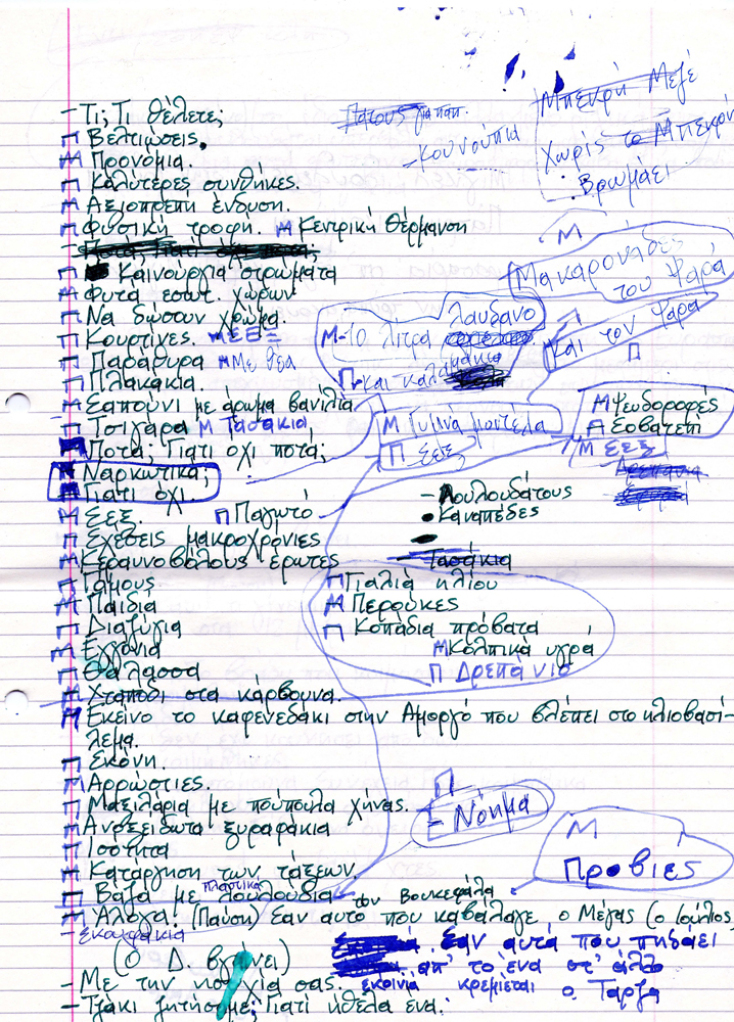 - Τι; Τι θέλετε;
Π Βελτιώσεις.
Μ Προνόμια.
Π Καλύτερες συνθήκες.
Μ Αξιοπρεπή ένδυση.
Π Φυσική τροφή. Μ Κεντρική Θέρμανση
- Ποτά; Γιατί όχι ποτά;
Π Καινούργια στρώματα
Μ Φυτά εσωτ. χώρων
Π Να δώσουν χρώμα.
Π Κουρτίνες. Μ ΣΕΞ
Π Παράθυρα Μ Με θέα
Π Πλακάκια.
Μ Σαπούνι με άρωμα βανίλια
Π Τσιγάρα Μ Τασάκια
Ποτά; Γιατί όχι ποτά;
Ναρκωτικά;
Γιατί όχι.
Μ Σεξ. Π Παγωτό
Π Σχέσεις μακροχρόνιες
Μ Κεραυνοβόλους έρωτες
Π Γάμους
Μ Παιδιά
Π Διαζύγια
Μ Εγγόνια
Π Θάλασσα
Μ Χταπόδι στα κάρβουνα.
Μ Εκείνο το καφενεδάκι στην Αμοργό που βλέπει στο ηλιοβασί-
λεμα.
Π Σκόνη.
Μ Αρρώστιες.
Π Μαξιλάρια με πούπουλα χήνας.
Μ Ανοξείδωτα ξυραφάκια
Π Ισότητα
Μ Κατάργηση των τάξεων.
Π Βάζα με πλαστικά λουλούδια
Μ Άλογα! (Παύση) Σαν αυτό τον Βουκεφάλα που καβάλαγε ο Μέγας (ο Ιούλιος)
- Σκοινάκια
Σαν αυτά που πηδάει
(ο Δ. βγαίνει) απ' το ένα στ' άλλο
- Με την σας. σκοινιά κρεμιέται ο Ταρζά
- Τζάκι ζητήσαμε; Γιατί ήθελα ένα.
για παπ.
- Κουνούπια
Μπεκρή Μεζέ
Χωρίς το Μπεκρή
Βρωμάει
Μ
Μακαρονάδες
του Ψαρά
Και τον Ψαρά
Π
Μ - 10 λίτρα λαύδανο
Π - και καλαμάκια
Μ Γυμνά μοντέλα
Π Σεξ
Μ Ψευδοροφές
Π Σοβατεπί
Μ Σεξ
Δρεπάνια
- Λουλουδάτους
Καναπέδες
- Τασάκια
Π Γιαλιά ηλίου
Μ Περούκες
Π Κοπάδια πρόβατα
Μ Κολπικά υγρά
Π Δρεπάνια
Π
- Νόημα
Μ
Προβιές